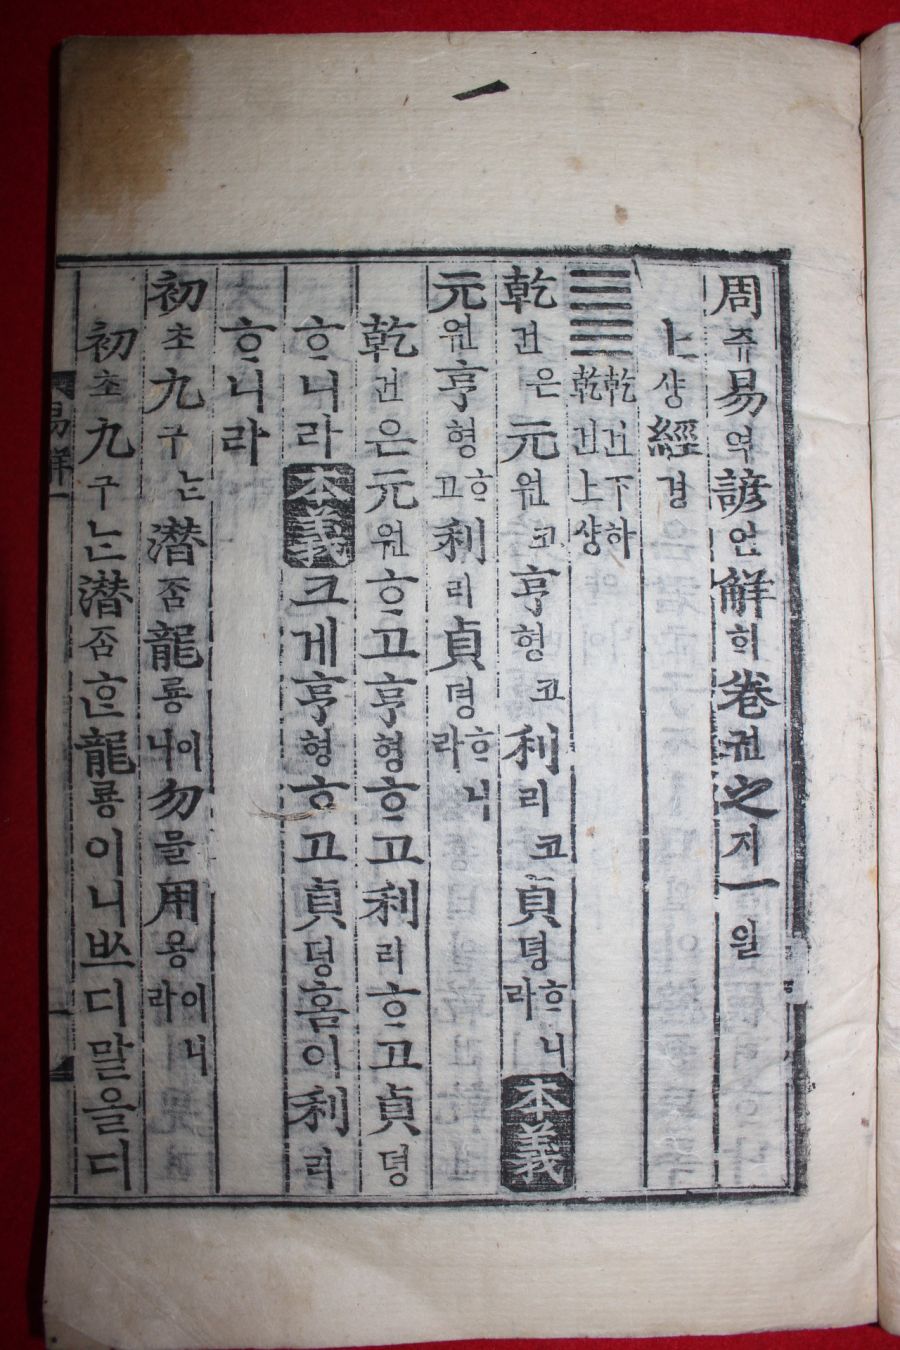 一
周쥬易역諺언解ᄒᆡ卷권之지一일
上샹經경
乾건下하
乾건上샹
乾건은元원코亨형코利리코貞뎡ᄒᆞ니라本義
元원亨형ᄒᆞ고利리貞뎡ᄒᆞ니라
乾건은元원ᄒᆞ고亨형ᄒᆞ고利리ᄒᆞ고貞뎡
ᄒᆞ니라本義크게亨형ᄒᆞ고貞뎡홈이利리
ᄒᆞ니라
初초九구ᄂᆞᆫ潛ᄌᆞᆷ龍룡이니勿믈用용이니라
初초九구ᄂᆞᆫ潛ᄌᆞᆷᄒᆞᆫ龍룡이니ᄡᅳ디말을디
易解一